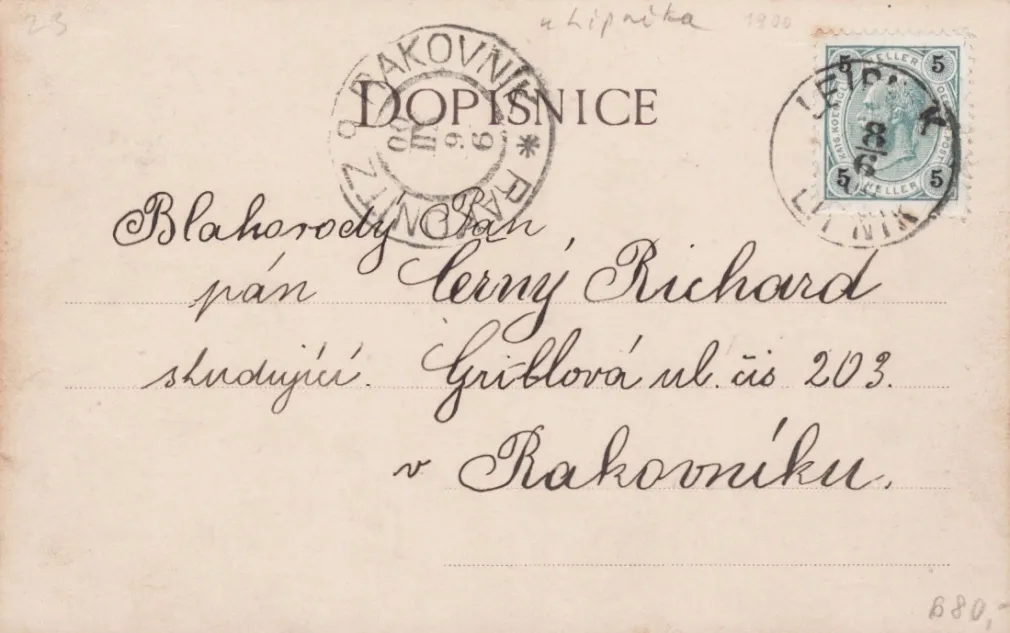 23
u Lipníka 1900
DOPISNICE
RAKOVNÍK * RAKONITZ
9 6
5 HELLER 5
5 HELLER 5
8/6
LIPNIK
Blahorodý Pan
pán Černý Richard
studující. Griblová ul. čis 203.
v Rakovníku.
680,-